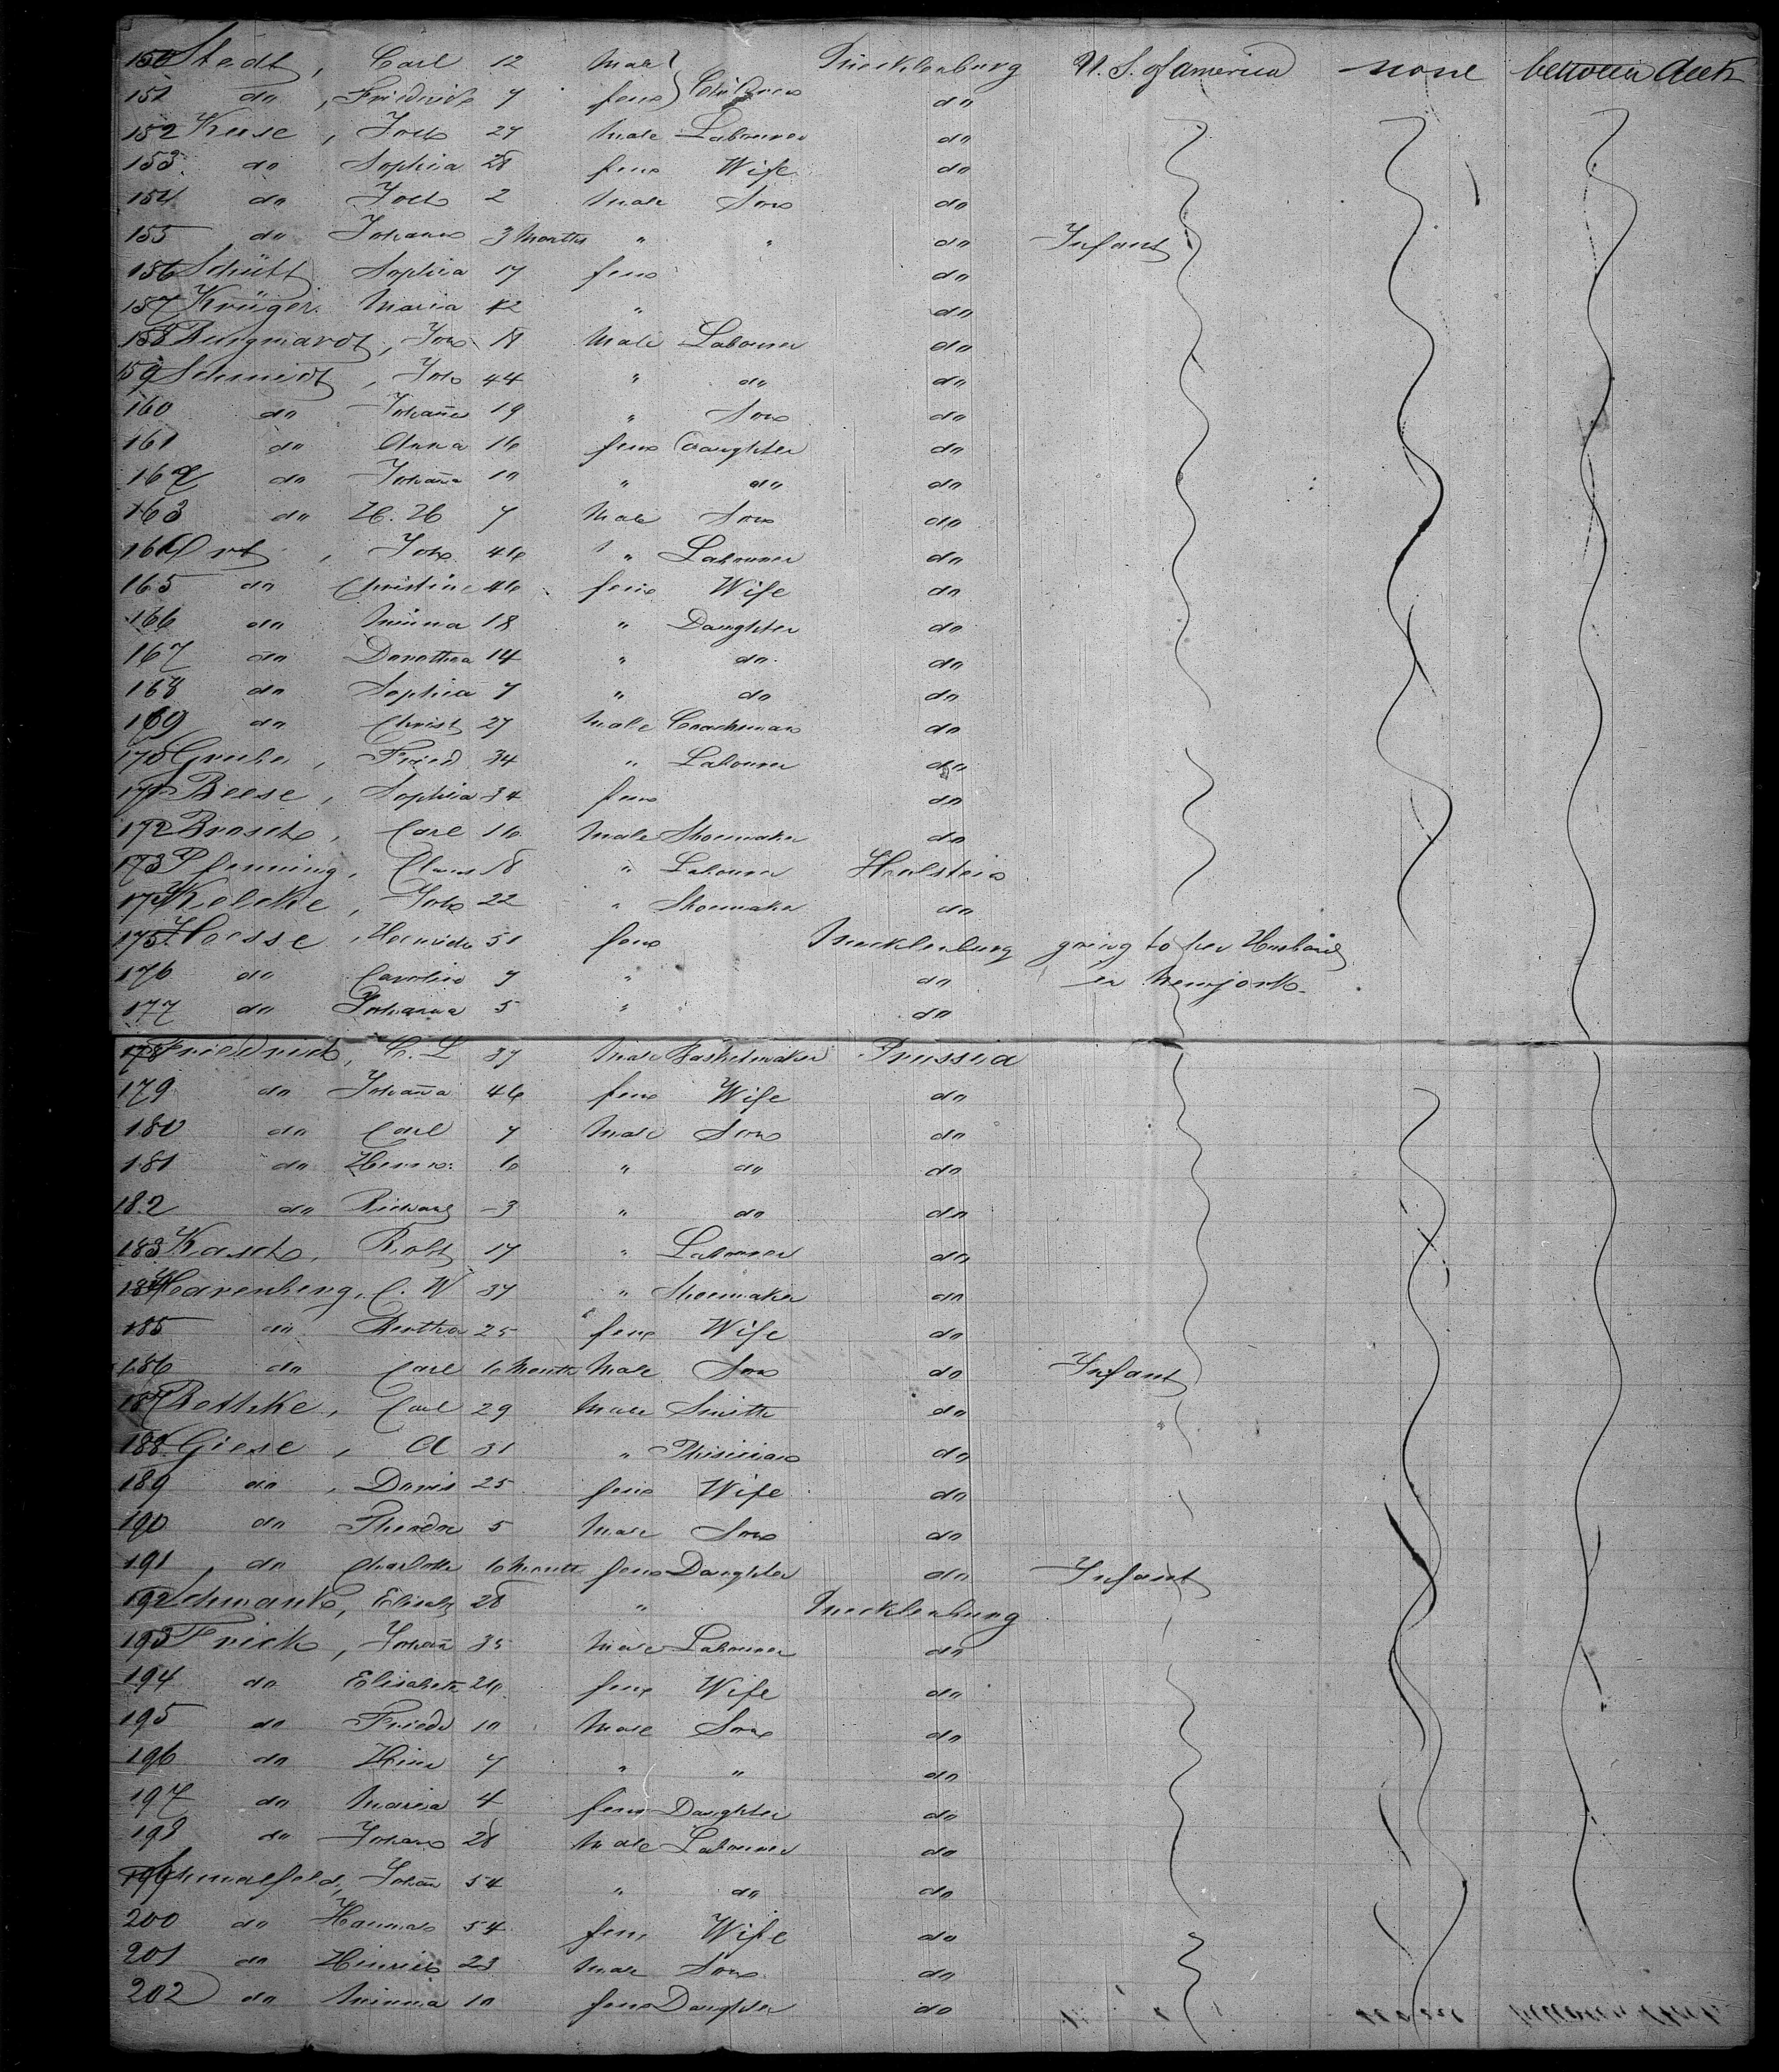 150 Stedt, Carl 12 Male Mecklenburg U. S. of america none between deck
151 do, Friedrich 7 fem Children do
152 Kuse, Joch 27 Male Labourer do
153 do Sophia 28 fem Wife do
154 do Joch 2 Male Son do
155 do Johann 3 Months " " do Infant
156 Schütt Sophia 17 fem do
157 Krüger. Maria 42 " do
158 Burgmardt, Joh 18 Male Labourer do
159 Schmidt, Joh 44 " do do
160 do Johañes 19 " Son do
161 do Anna 16 fem Daughter do
162 do Johaña 10 " do do
163 do H. H 7 Male Son do
164 Ort, Joh 46 " Labourer do
165 do Christine 46 fem Wife do
166 do Minna 18 " Daughter do
167 do Dorothea 14 " do do
168 do Sophia 7 " do do
169 do Christ 27 Male Coachman do
170 Grube, Fried 34 " Labourer do
171 Beese, Sophia 34 fem do
172 Brosch, Carl 16 Male Shoemaker do
173 Pfenning, Claus 18 " Labourer Holstein
174 Kelcke, Joh 22 " Shoemaker do
175 Hasse, 51 fem Mecklenburg going to her Husband
176 do Caroline 9 " do in Newjork
177 do Johanna 5 " do
178 Friedrich, C. L 37 Male Basketmaker Prussia
179 do Johaña 46 fem Wife do
180 do Carl 7 Male Son do
181 do Herm: 6 " do do
182 do Richard 3 " do do
183 Kasch, Robt 17 " Labourer do
184 Harenberg, C. W 37 " Shoemaker do
185 do Bertha 25 fem Wife do
186 do Carl 6 Month Male Son do Infant
187 Bethke, Carl 29 Male Smith do
188 Giese, A 31 " Phisician do
189 do, Doris 25 fem Wife do
190 do Theodor 5 Male Son do
191 do Charlotte 6 Month fem Daughter do Infant
192 Schmank, Elisab 28 " Mecklenburg
193 Frick, Johañ 35 Male Labourer do
194 do Elisabeth 26 fem Wife do
195 do Friedr 10 Male Son do
196 do Hinr 7 " " do
197 do Maria 4 fem Daughter do
198 do Johann 28 Male Labourer do
199 Schmalfeld, Johañ 54 " do do
200 do Hanna 54 fem Wife do
201 do Hinrich 23 Male Son do
202 do Minna 10 fem Daughter do